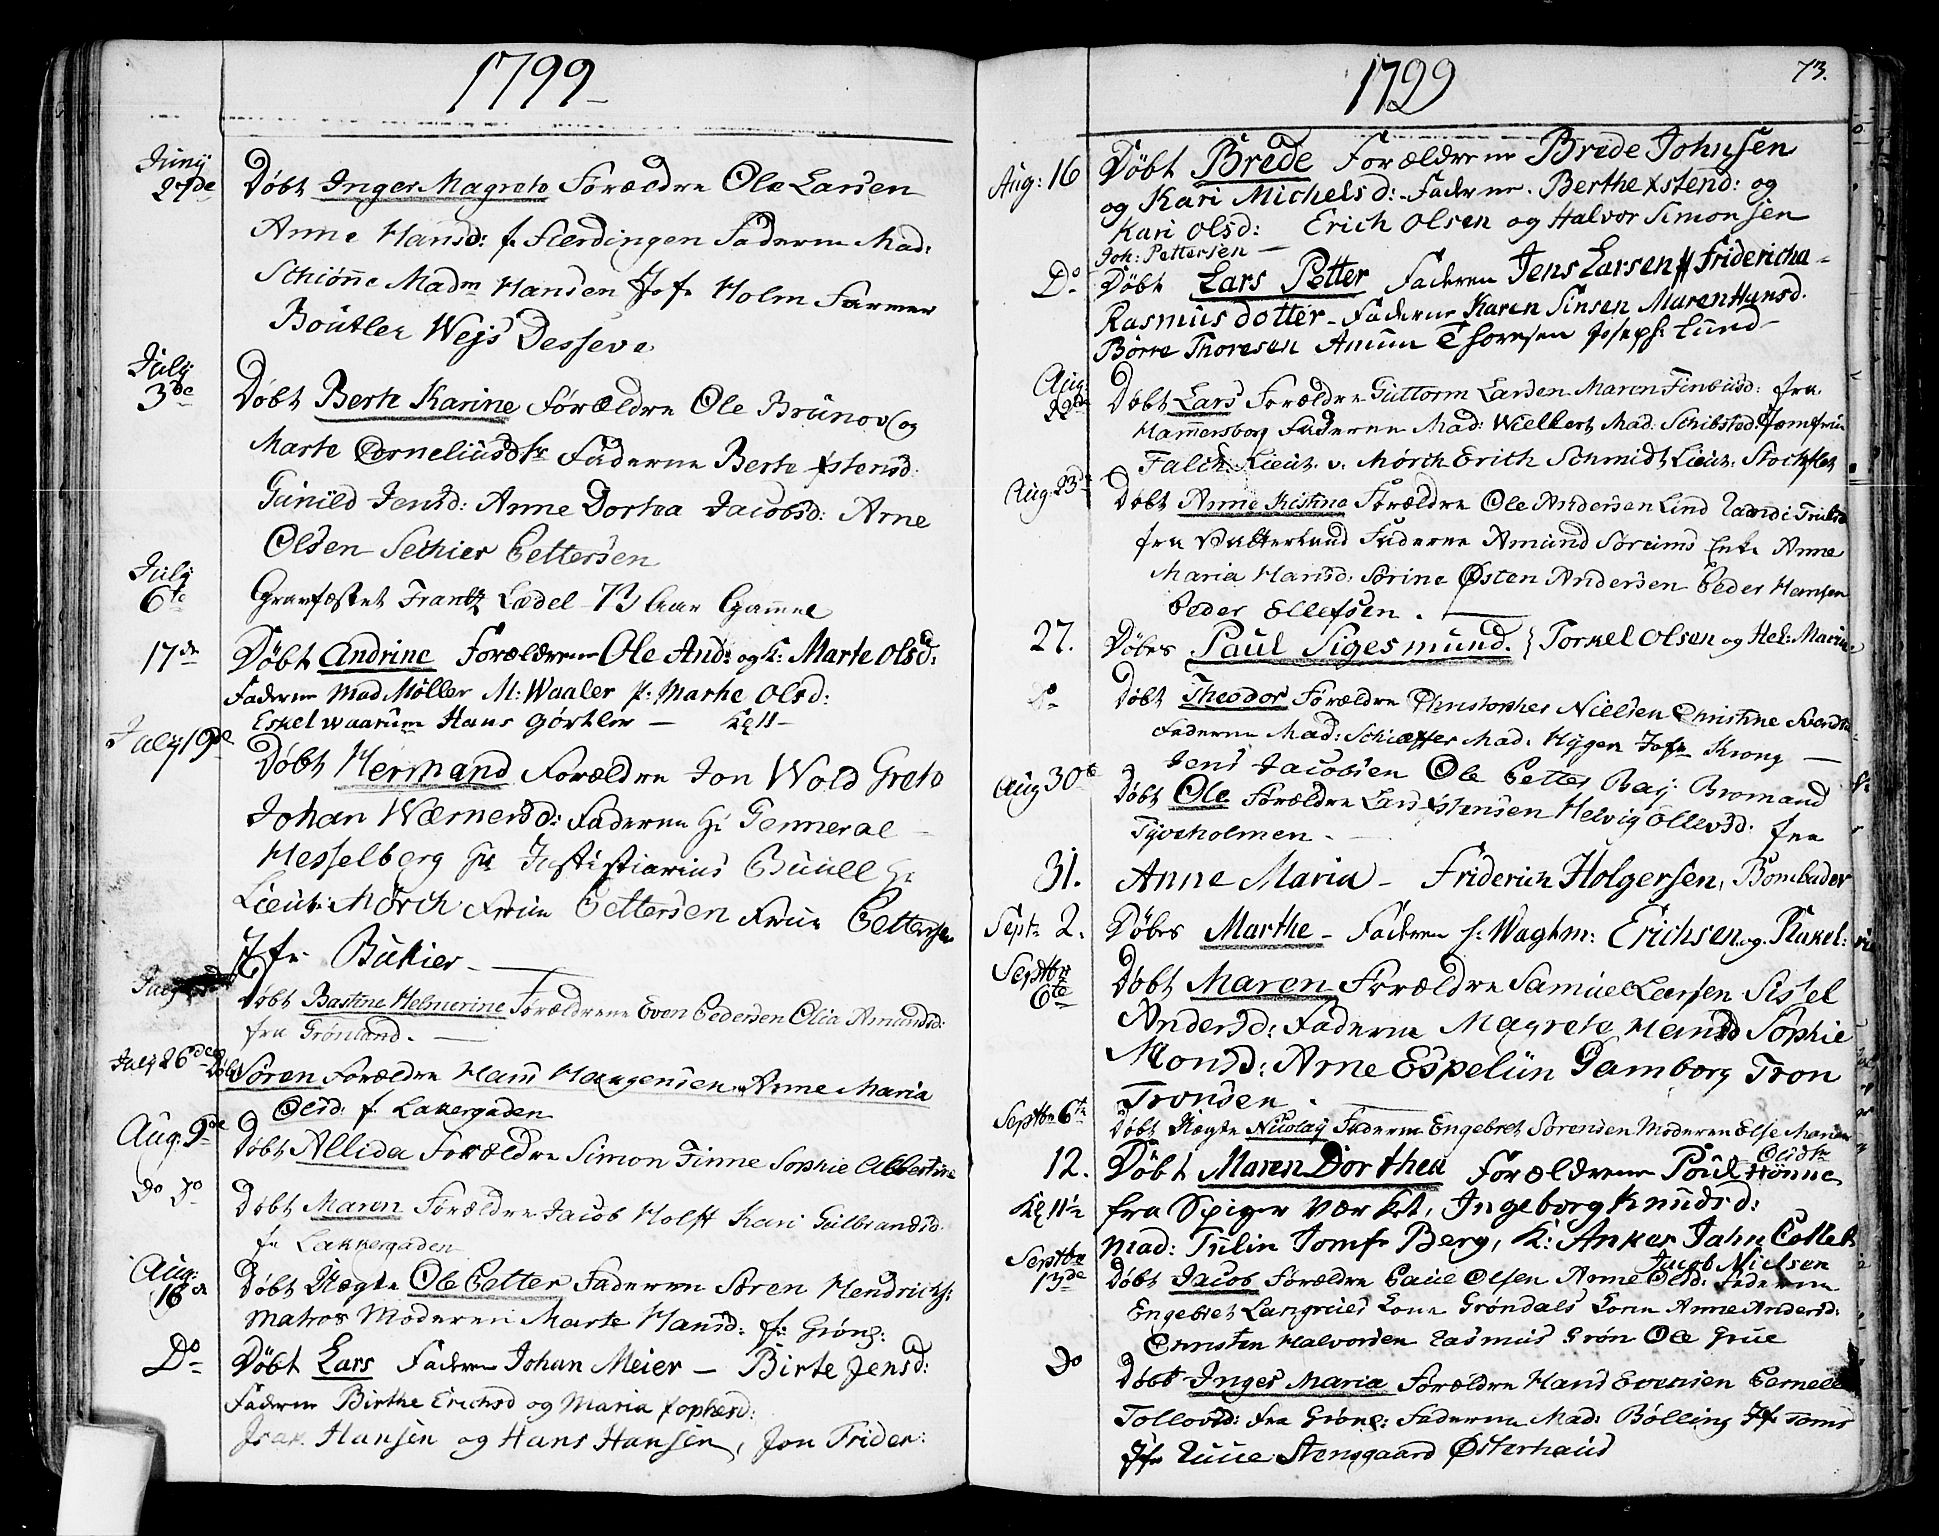 1799
Junij
27de Døbt Inger Magrete Forældre Ole Larsen
Anne Hansd: f Fierdingen Faderne Mad:
Schiønne Madm Hansen Jfr Holm Farmer
Boutler Weis Desseve
July
3de Døbt Berte Karine Forældre Ole Brunov og
Marte Corneliusdtr Faderne Berte Xstensd:
Gunild Jensd: Anne Dortea Jacobsd: Arne
Olsen Sechier Pettersen
July
6te Gravfæstet Frantz Ladel 73 Aar Gamme
17de Døbt Andrine Forældrene Ole And: og K: Marte Olsd:
Faderne Mad Møller M: Waaler P: Marhe Olsd:
Eskel Waarum Hans Gørtler — Kl 11 —
July 19de
Døbt Hermand Forældre Jon Wold Grete
Johan Wærnersd: Faderne Hr Generae
Hesselberg Hr Justistiarius Buuel Hr
Lieut: Mørch Frue Pettersen Frue Pettersen
Jfr Bukier —
July
Døbt Bastine Helmerine Forældrene Even Pedersen Olia Amundsd:
fra Grønland. —
July 26de Døbt Søren Forældre Hans Haagensen Anne Maria
Olsd: f. Lakkergaden
Aug: 9de Døbt Allida Forældre Simon Finne Sophie Albertine
Do Do Døbt Maren Forældre Jacob Holst Kari Gulbrandsd.
fr Lakkergaden
Aug:
16de Døbt Uægte Ole Petter Faderen Søren Hendrichs:
Matros Moderen Marte Hansd: fr: Grønl:
Do Døbt Lars Faderen Johan Meier — Birte Jensd:
Faderne Birthe Erichsd og Maria Xophersd:
Isak Hansen og Hans Hansen, Jon Frider:
1799 73.
Aug: 16 Døbt Brede Forældrene Brede Johnsen
og Kari Michelsd: Faderne. Berthe Xstend: og
Kari Olsd: Erich Olsen og Halvor Simonsen
Joh: Pettersen —
Do Døbt Lars Petter Faderen Jens Larsen Fridericha
Rasmusdotter — Faderne Karen Jensen Maren Hansd.
Børre Thoresen Amun Thoresen Joseph: Lund
Aug:
22de Døbt Lars Forældre Guttorm Larsen Maren Finbusd: fra
Hammersborg Faderne Mad: Wielbert Mad: Schibsted Jomfru
Falch Lieut. v. Mørch Erich Schmidt Lieut: Stochflet
Aug: 23de Døbt Anne Kistine Forældre Ole Andersen Lind Randi Trulsd
fra Vatterland Faderne Amund Sørums Enke Anne
Maria Hansd: Sørine Østen Andersen Peder Hansen
Peder Ellefsen. —
27. Døbes Paul Sigesmund. Torkel Olsen og Hel: Marin
Do Døbt Theodor Forældre Christopher Nielsen Christine Svendsd
Faderne Mad: Schiæffer Mad: Hygen Jfr Krong —
Jens Jacobsen Ole Petter Baj Bromand
Aug 30te Døbt Ole Forældre Lars Xstensen Helvig Ollevsd: fra
Tyveholmen. —
31. Anne Maria — Friderich Holgersen, Bombader
Septr 2. Døbes Marthe — Faderen s: Waghm: Erichsen og Rakel:
Septbr
6te Døbt Maren Forældre Samuel Larsen Sissel
Andersd: Faderne Magrete Hansd Sophie
Monsd: Arne Espelun Gamborg Tron
Tronsen. —
Septbr 6te Døbt Uægte Nicolay Faderen Engebret Sørensen Moderen Else Marie
Olsdtr
12. Døbt Maren Dorthea Forældrene Poul Hønne
Kl 11½ fra Spigerværket, Ingeborg Knudsd:
Mad: Tulin Jomfr Berg, K: Anker Jahn Collet
Jacob Nielsen
Septbr
13de Døbt Jacob Forældre Paul Olsen Anne Olsd: Faderne
Engebret Langruds Kone Grøndals Kone Anne Andersd:
Christen Halvorsen Rasmus Grøn Ole Grue
Do Døbt Inger Maria Forældre Hans Evensen Pernelle
Tollevsd: fra Grønl: Faderne Mad: Bølling Jfr Toms
Jfr Ruue Stensgaard Østerhaus